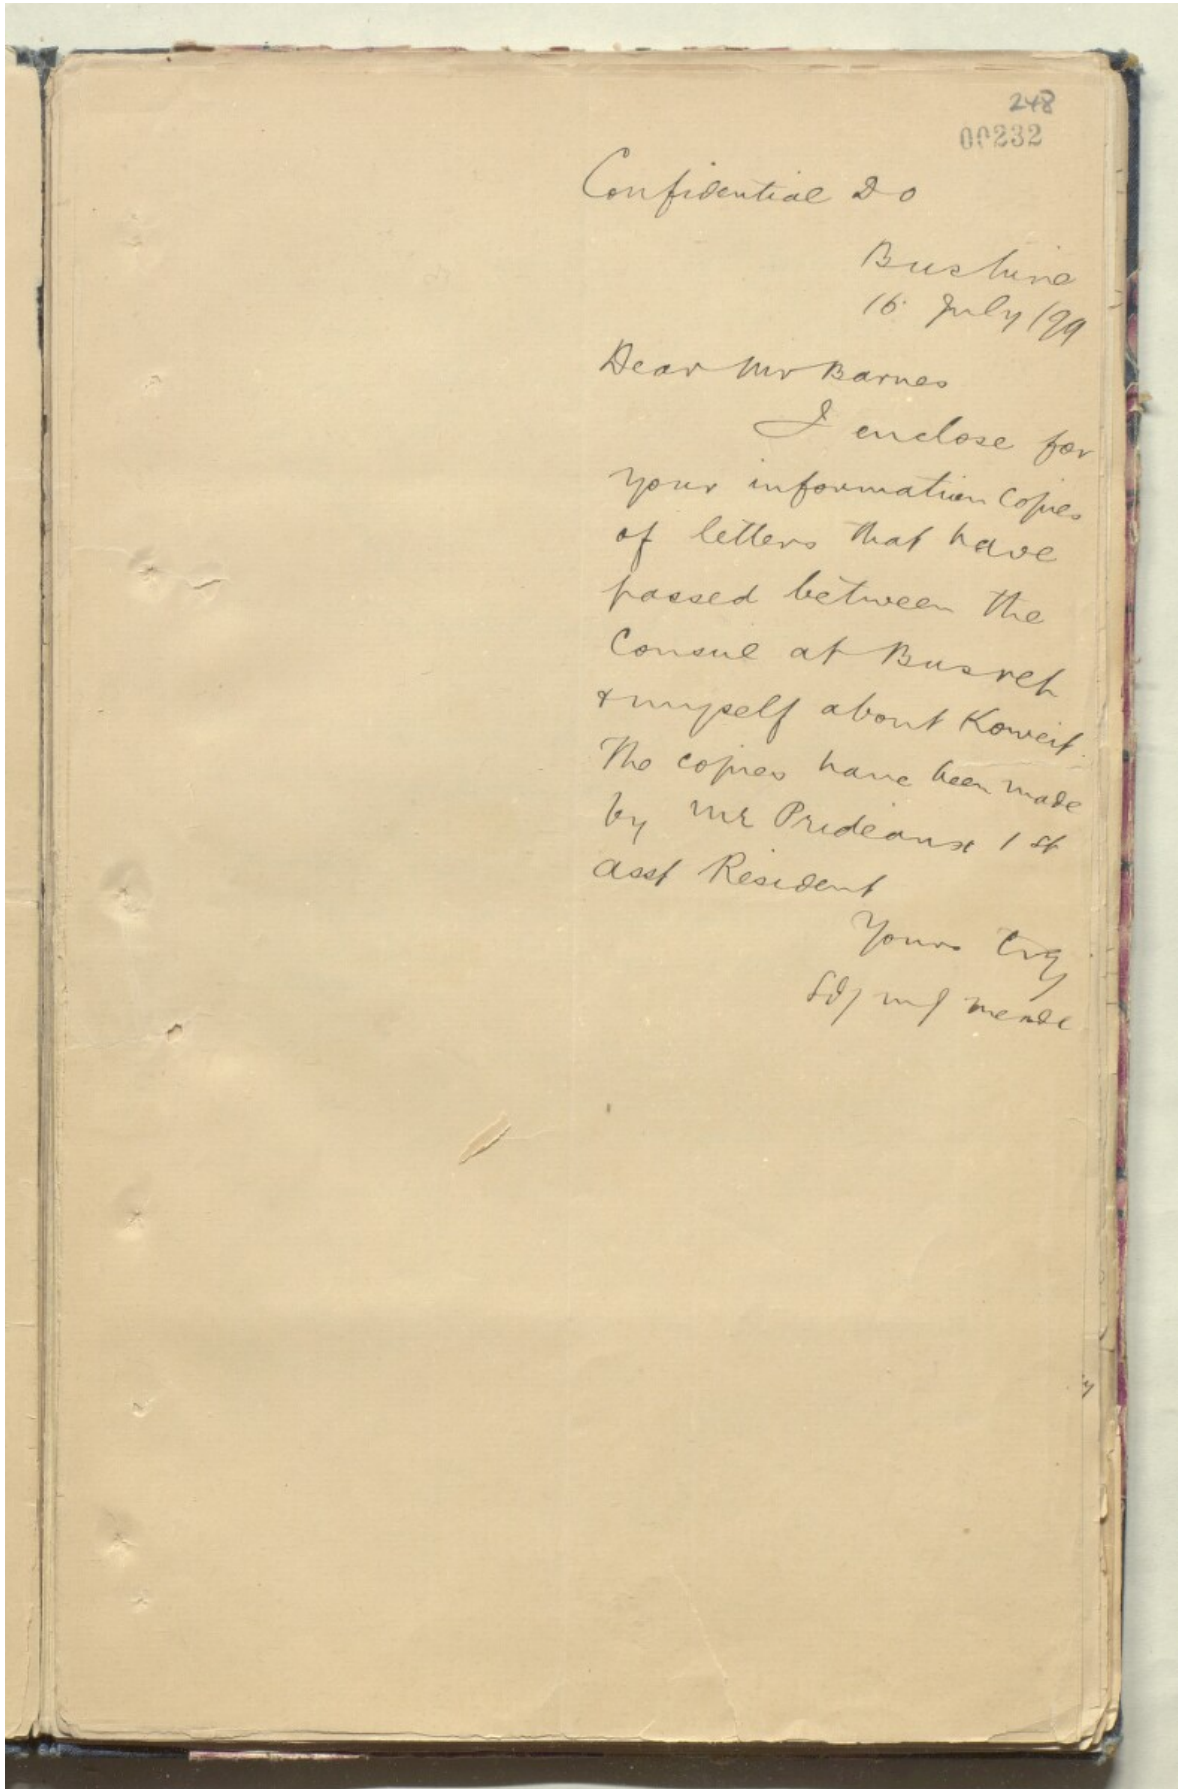 248
00232
Confidential DO
Bushire
16 July /99
Dear Mr Barnes
I enclose for
your information copies
of letters that have
passed between the
Consul at Busreh
& myself about Koweit.
The copies have been made
by Mr Prideaux 1st
Asst Resident
Yours try
Sd/ M J Meade